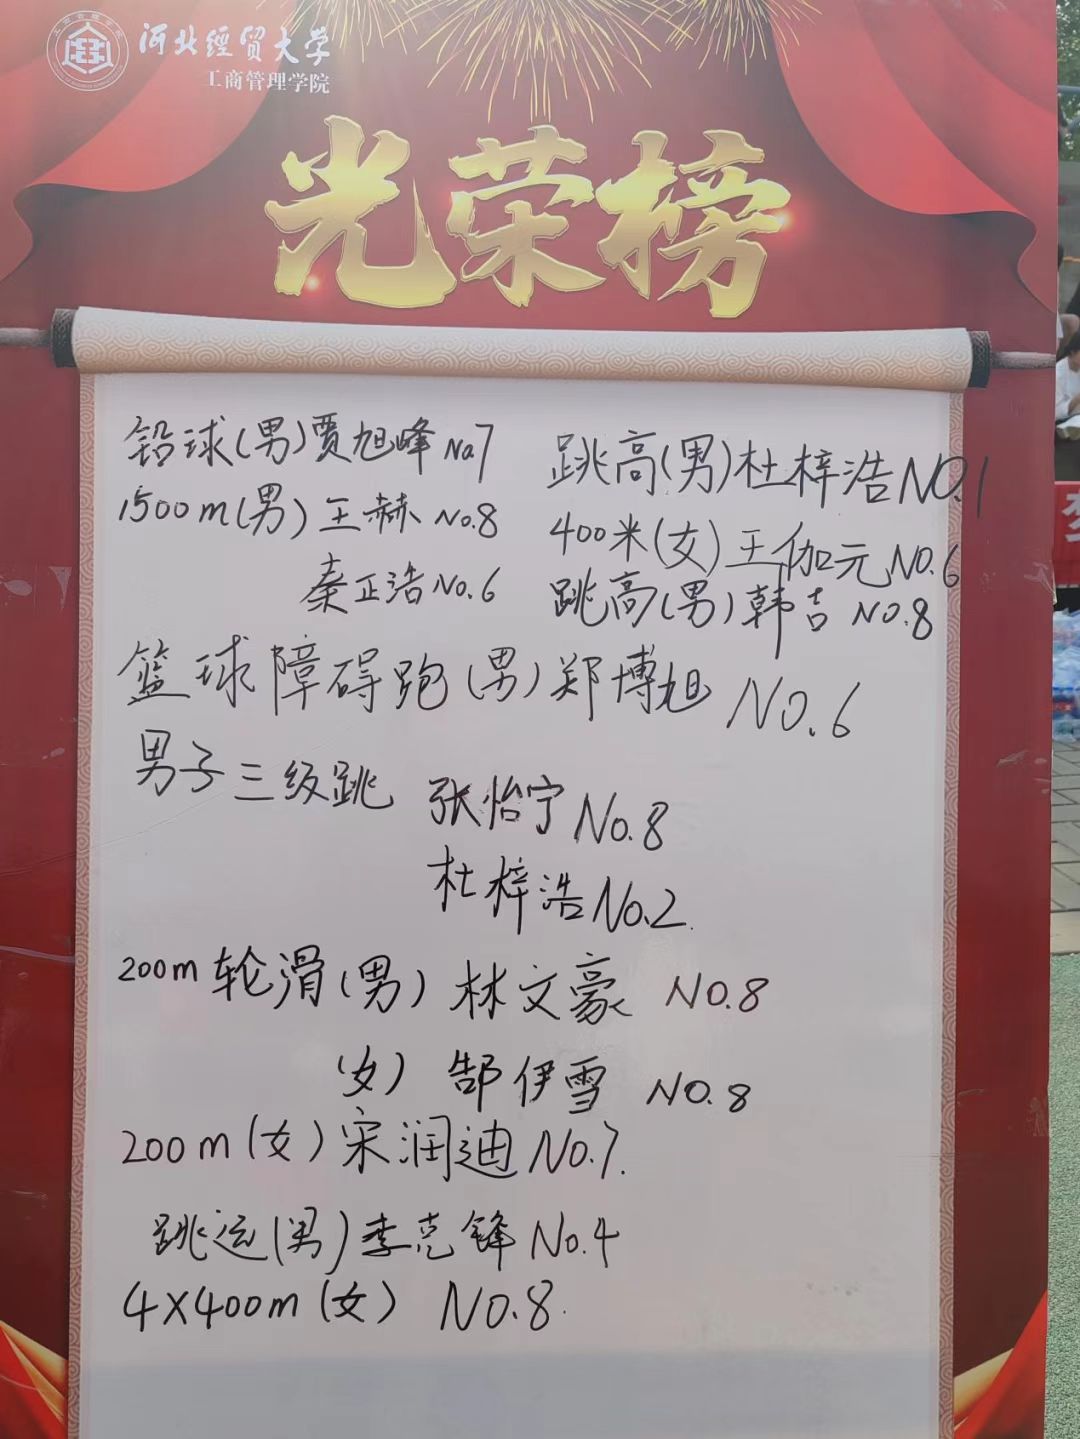 河北经贸大学
工商管理学院
光荣榜
铅球(男)贾旭峰 No7
跳高(男)杜梓浩 NO.1
1500m(男)王赫 No.8
400米(女)王伽元 NO.6
秦正浩 No.6
跳高(男)韩吉 NO.8
篮球障碍跑(男)郑博旭 NO.6
男子三级跳 张怡宁 No.8
杜梓浩 No.2.
200m轮滑(男)林文豪 NO.8
女) 郜伊雪 NO.8
200m(女)宋润迪 No.7.
跳远(男)李克锋 No.4
4X400m(女) NO.8.